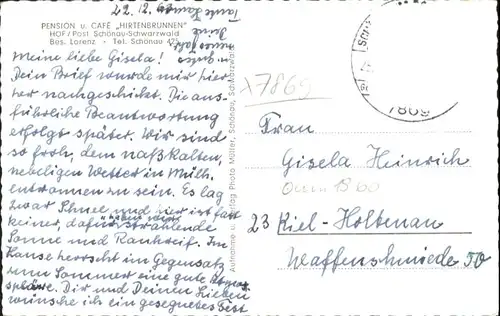 22.12.
PENSION u. CAFÉ „HIRTENBRUNNEN"
HOF/Post Schönau-Schwarzwald
Bes. Lorenz - Tel. Schönau
Meine liebe Gisela!
Dein Brief wurde mir hier
her nachgeschickt. Die aus-
führliche Beantwortung
erfolgt später. Wir sind
so froh, dem naßkalten,
nebeligen Wetter in Mülh.
entronnen zu sein. Es lag
zwar Schnee und hier ist fast
keiner, dafür strahlende
Sonne und Rauhreif. Im
Hause herrscht im Gegensatz
zum Sommer eine gute Atmos-
sphäre. Dir und Deinen Lieben
wünsche ich ein gesegnetes Fest
Tante
Deine
Aufnahme u. Verlag Photo Müller, Schönau, Schwarzwald
x7869
Frau
Gisela Heinrich
23 Kiel-Holtenau
Waffenschmiede 50